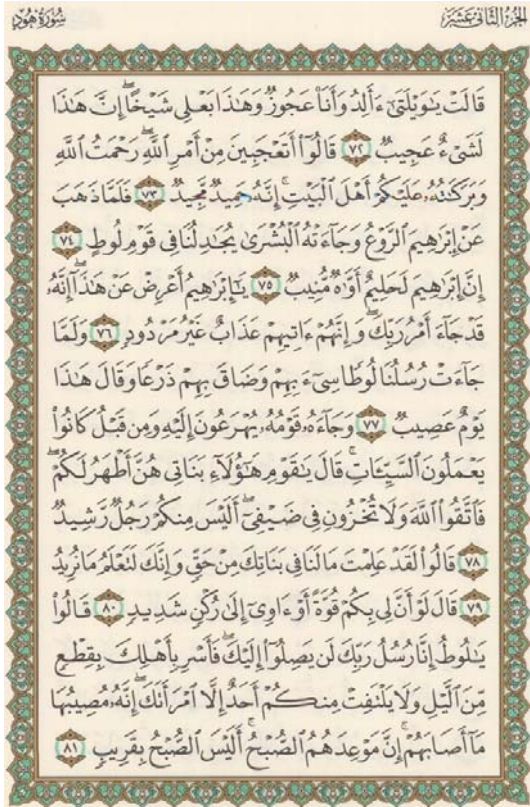 الجزء الثاني عشر
سورة هود
قَالَتْ يَٰوَيْلَتَىٰٓ ءَأَلِدُ وَأَنَا۠ عَجُوزٌ وَهَٰذَا بَعْلِى شَيْخًا ۖ إِنَّ هَٰذَا
لَشَىْءٌ عَجِيبٌ ٧٢ قَالُوٓا۟ أَتَعْجَبِينَ مِنْ أَمْرِ ٱللَّهِ ۖ رَحْمَتُ ٱللَّهِ
وَبَرَكَٰتُهُۥ عَلَيْكُمْ أَهْلَ ٱلْبَيْتِ ۚ إِنَّهُۥ حَمِيدٌ مَّجِيدٌ ٧٣ فَلَمَّا ذَهَبَ
عَنْ إِبْرَٰهِيمَ ٱلرَّوْعُ وَجَآءَتْهُ ٱلْبُشْرَىٰ يُجَٰدِلُنَا فِى قَوْمِ لُوطٍ ٧٤
إِنَّ إِبْرَٰهِيمَ لَحَلِيمٌ أَوَّٰهٌ مُّنِيبٌ ٧٥ يَٰٓإِبْرَٰهِيمُ أَعْرِضْ عَنْ هَٰذَآ ۖ إِنَّهُۥ
قَدْ جَآءَ أَمْرُ رَبِّكَ ۖ وَإِنَّهُمْ ءَاتِيهِمْ عَذَابٌ غَيْرُ مَرْدُودٍ ٧٦ وَلَمَّا
جَآءَتْ رُسُلُنَا لُوطًا سِىٓءَ بِهِمْ وَضَاقَ بِهِمْ ذَرْعًا وَقَالَ هَٰذَا
يَوْمٌ عَصِيبٌ ٧٧ وَجَآءَهُۥ قَوْمُهُۥ يُهْرَعُونَ إِلَيْهِ وَمِن قَبْلُ كَانُوا۟
يَعْمَلُونَ ٱلسَّيِّـَٔاتِ ۚ قَالَ يَٰقَوْمِ هَٰٓؤُلَآءِ بَنَاتِى هُنَّ أَطْهَرُ لَكُمْ ۖ
فَٱتَّقُوا۟ ٱللَّهَ وَلَا تُخْزُونِ فِى ضَيْفِىٓ ۖ أَلَيْسَ مِنكُمْ رَجُلٌ رَّشِيدٌ
٧٨ قَالُوا۟ لَقَدْ عَلِمْتَ مَا لَنَا فِى بَنَاتِكَ مِنْ حَقٍّ وَإِنَّكَ لَتَعْلَمُ مَا نُرِيدُ
٧٩ قَالَ لَوْ أَنَّ لِى بِكُمْ قُوَّةً أَوْ ءَاوِىٓ إِلَىٰ رُكْنٍ شَدِيدٍ ٨٠ قَالُوا۟
يَٰلُوطُ إِنَّا رُسُلُ رَبِّكَ لَن يَصِلُوٓا۟ إِلَيْكَ ۖ فَأَسْرِ بِأَهْلِكَ بِقِطْعٍ
مِّنَ ٱلَّيْلِ وَلَا يَلْتَفِتْ مِنكُمْ أَحَدٌ إِلَّا ٱمْرَأَتَكَ ۖ إِنَّهُۥ مُصِيبُهَا
مَآ أَصَابَهُمْ ۚ إِنَّ مَوْعِدَهُمُ ٱلصُّبْحُ ۚ أَلَيْسَ ٱلصُّبْحُ بِقَرِيبٍ ٨١